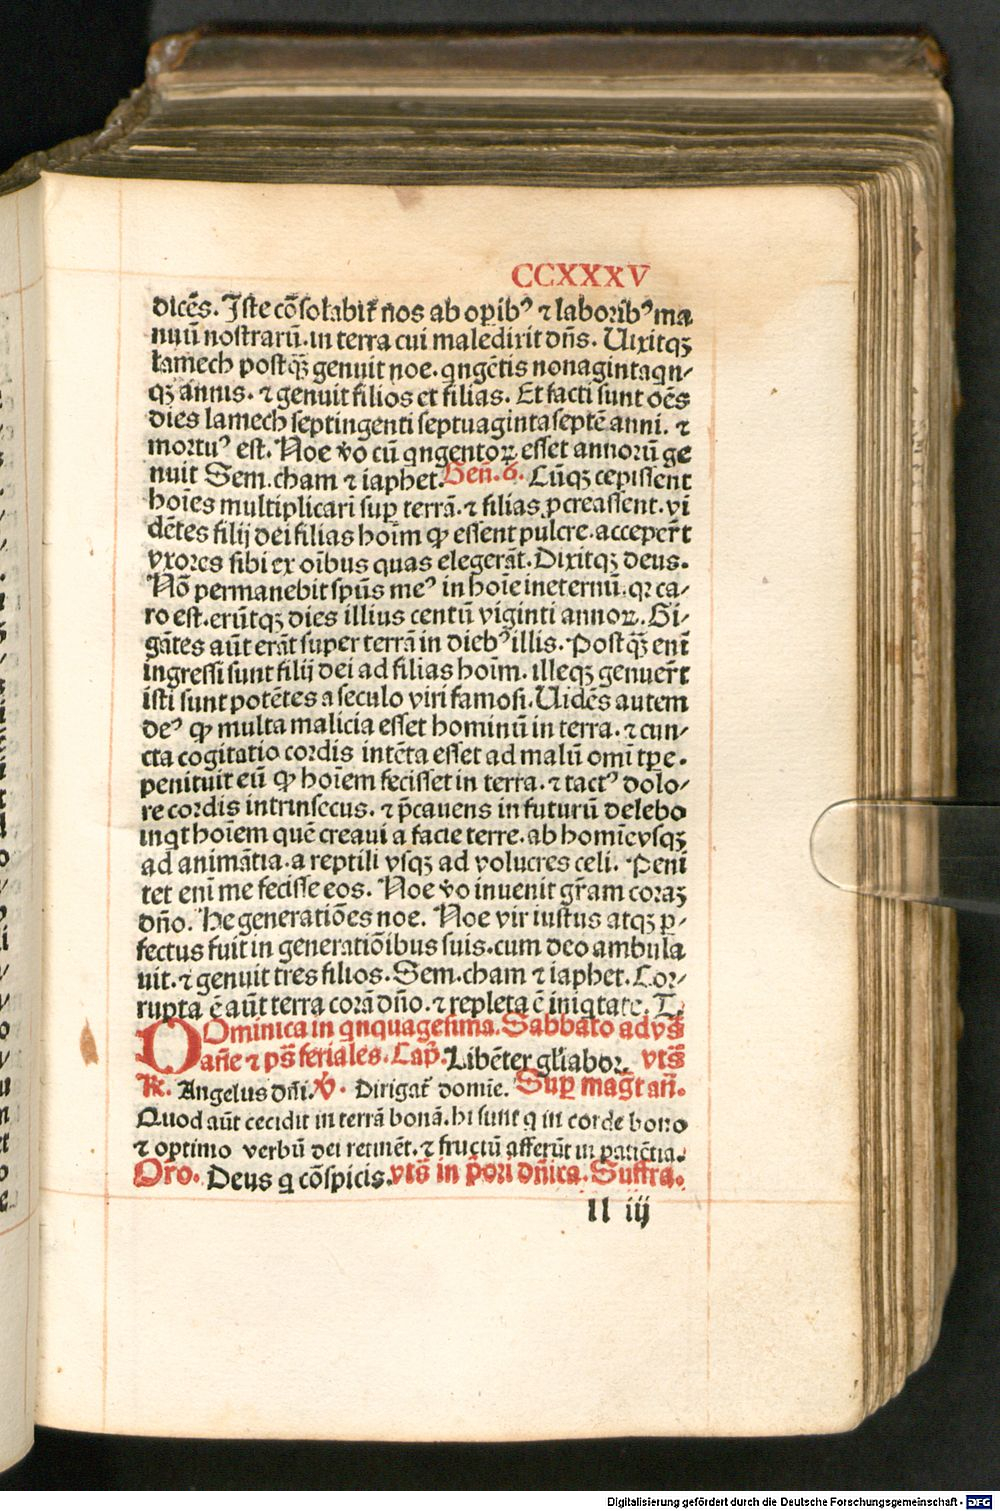 CCXXXV
dicēs. Iste cōsolabit᷑ nos ab oꝑibꝰ ⁊ laboribꝰ ma
nuū nostrarū. in terra cui maledixit dn̄s. Uixitqꝫ
lamech postqꝫ̄ genuit noe. qngētis nonagintaqn⸗
qꝫ annis. ⁊ genuit filios et filias. Et facti sunt oēs
dies lamech septingenti septuagintaseptē anni. ⁊
mortuꝰ est. Noe v̄o cū qngentoꝝ esset annorū ge
nuit Sem. cham ⁊ iaphet. Gen̄. 6. Cūqꝫ cepissent
hoīes multiplicari suꝑ terrā. ⁊ filias ꝓcreassent. vi
dētes filij dei filias hoīm ꝙ essent pulcre. acceper̄t
vxores sibi ex oībus quas elegerāt. Dixitqꝫ deus.
Nō permanebit spūs meꝰ in hoīe ineternū. qꝛ ca⸗
ro est. erūtqꝫ dies illius centū viginti annoꝝ. Gi⸗
gātes aūt erāt super terrā in diebꝰ illis. Postqꝫ̄ enī
ingressi sunt filij dei ad filias hoīm. illeqꝫ genuer̄t
isti sunt potētes a seculo viri famosi. Uidēs autem
deꝰ ꝙ multa malicia esset hominū in terra. ⁊ cun⸗
cta cogitatio cordis intēta esset ad malū omī tꝑe.
penituit eū ꝙ hoīem fecisset in terra. ⁊ tactꝰ dolo⸗
re cordis intrinsecus. ⁊ p̄cauens in futurū delebo
inqt hoīem quē creaui a facie terre. ab homīe vsqꝫ
ad animātia. a reptili vsqꝫ ad volucres celi. Peni
tet enī me fecisse eos. Noe v̄o inuenit gr̄am coraꝫ
dn̄o. He generatiōes noe. Noe vir iustus atqꝫ ꝑ⸗
fectus fuit in generatiōibus suis. cum deo ambula
uit. ⁊ genuit tres filios. Sem. cham ⁊ iaphet. Cor⸗
rupta ē aūt terra corā dn̄o. ⁊ repleta ē iniqtate. T.
DOminica in qnquagesima. Sabbato ad vꝑ̄s
an̄e ⁊ pꝭ̄ feriales. Cap̄. Libēter gl̄iaboꝝ. vts̄
℞. Angelus dn̄i. ℣. Dirigat᷑ domīe. Suꝑ magt̄ an̄.
Quod aūt cecidit in terrā bonā. hi sunt q in corde bono
⁊ optimo verbū dei retinēt. ⁊ fructū afferūt in patiētia.
Oro. Deus q cōspicis. vts̄ in p̄ori dn̄ica. Suffra.
ll iij
Digitalisierung gefördert durch die Deutsche Forschungsgemeinschaft - DFG